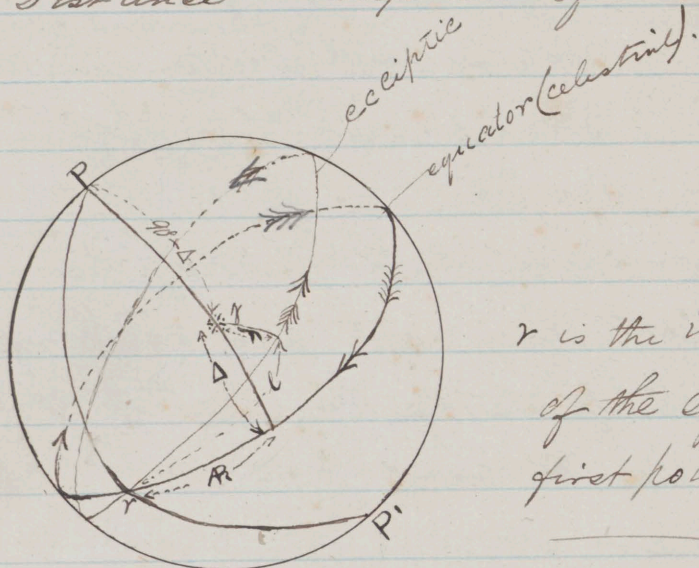 Distance
ecliptic
equator (celestial).
P
90 - Δ
λ
Δ
l
AR
r
P'
r is the
of the
first